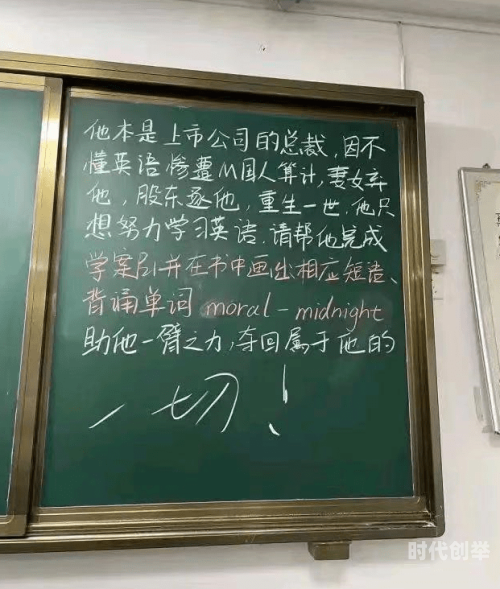 他本是上市公司的总裁，因不
懂英语惨遭从国人算计，妻女弃
他，股东逐他，重生一世，他只
想努力学习英语，请帮他完成
学案B1并在书中画出相应短语、
背诵单词 moral - midnight
助他一臂之力，夺回属于他的
一切！
时代创举